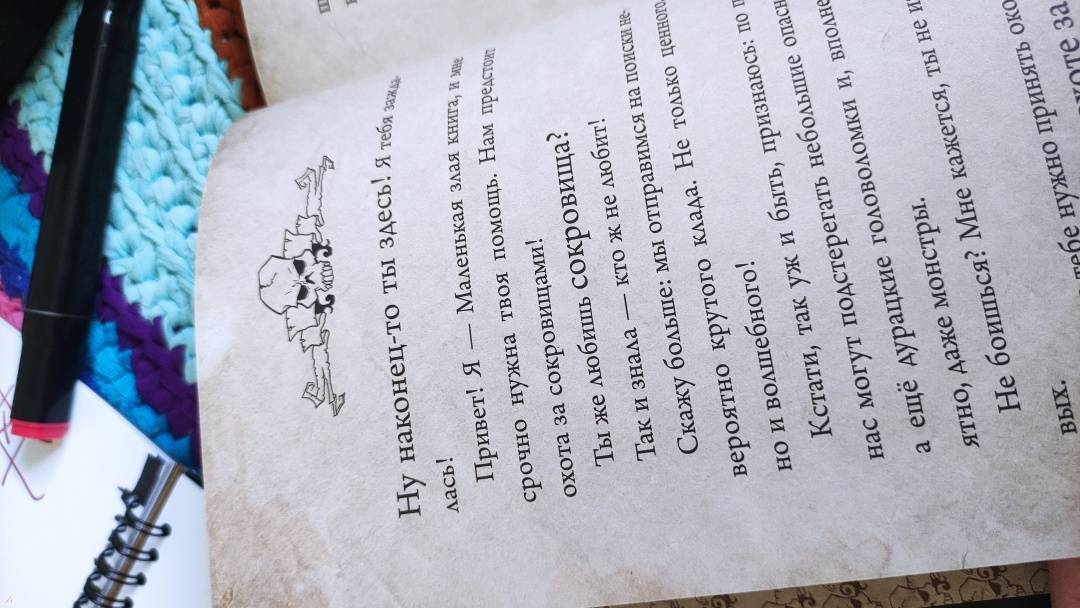 Ну наконец-то ты здесь! Я тебя зажда-
лась!
Привет! Я — Маленькая злая книга, и мне
срочно нужна твоя помощь. Нам предстоит
охота за сокровищами!
Ты же любишь сокровища?
Так и знала — кто ж не любит!
Скажу больше: мы отправимся на поиски не-
вероятно крутого клада. Не только ценного,
но и волшебного!
Кстати, так уж и быть, признаюсь: по п
нас могут подстерегать небольшие опасн
а ещё дурацкие головоломки и, вполне
ятно, даже монстры.
Не боишься? Мне кажется, ты не и
вых.
тебе нужно принять око
хоте за